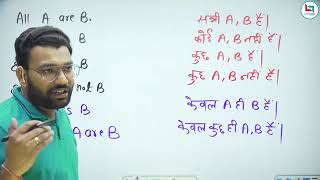 All A are B.
B
B
not B
B
A are B
सभी A, B हैं|
कोई A, B नहीं हैं|
कुछ A, B हैं|
कुछ A, B नहीं हैं|
केवल A ही B हैं|
केवल कुछ ही A, B हैं|